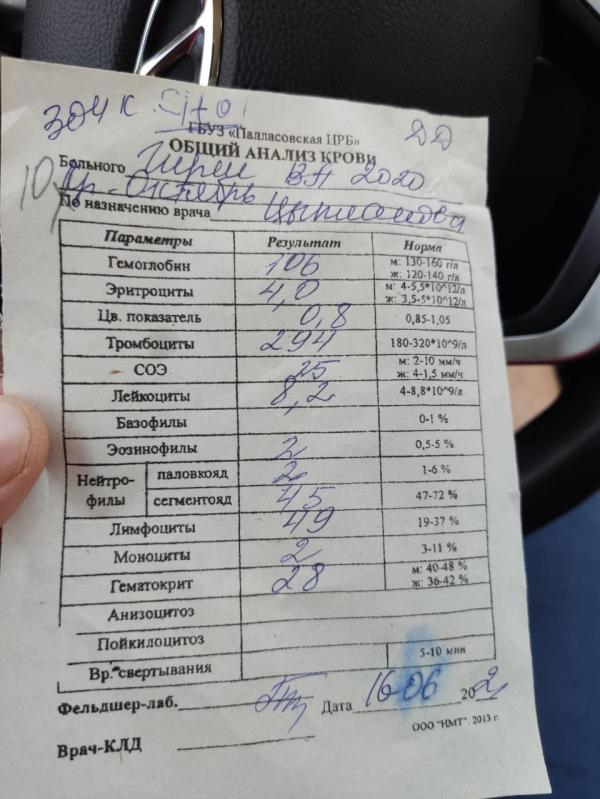 Cito!
ГБУЗ «Палласовская ЦРБ»
ОБЩИЙ АНАЛИЗ КРОВИ
Больного ВА 2020
10
Октябрь
По назначению врача
Параметры Результат Норма
Гемоглобин 106 м: 130-160 г/л
ж: 120-140 г/л
Эритроциты 4,0 м: 4-5,5*10^12/л
ж: 3,5-5*10^12/л
Цв. показатель 0,8 0,85-1,05
Тромбоциты 294 180-320*10^9/л
СОЭ 25 м: 2-10 мм/ч
ж: 4-1,5 мм/ч
Лейкоциты 8,2 4-8,8*10^9/л
Базофилы 0-1 %
Эозинофилы 2 0,5-5 %
Нейтро-
филы
паловкояд 2 1-6 %
сегментояд 45 47-72 %
Лимфоциты 49 19-37 %
Моноциты 2 3-11 %
Гематокрит 28 м: 40-48 %
ж: 36-42 %
Анизоцитоз
Пойкилоцитоз
Вр. свертывания 5-10 мин
Фельдшер-лаб. Дата 16 06 202
Врач-КЛД ООО "НМТ". 2013 г.